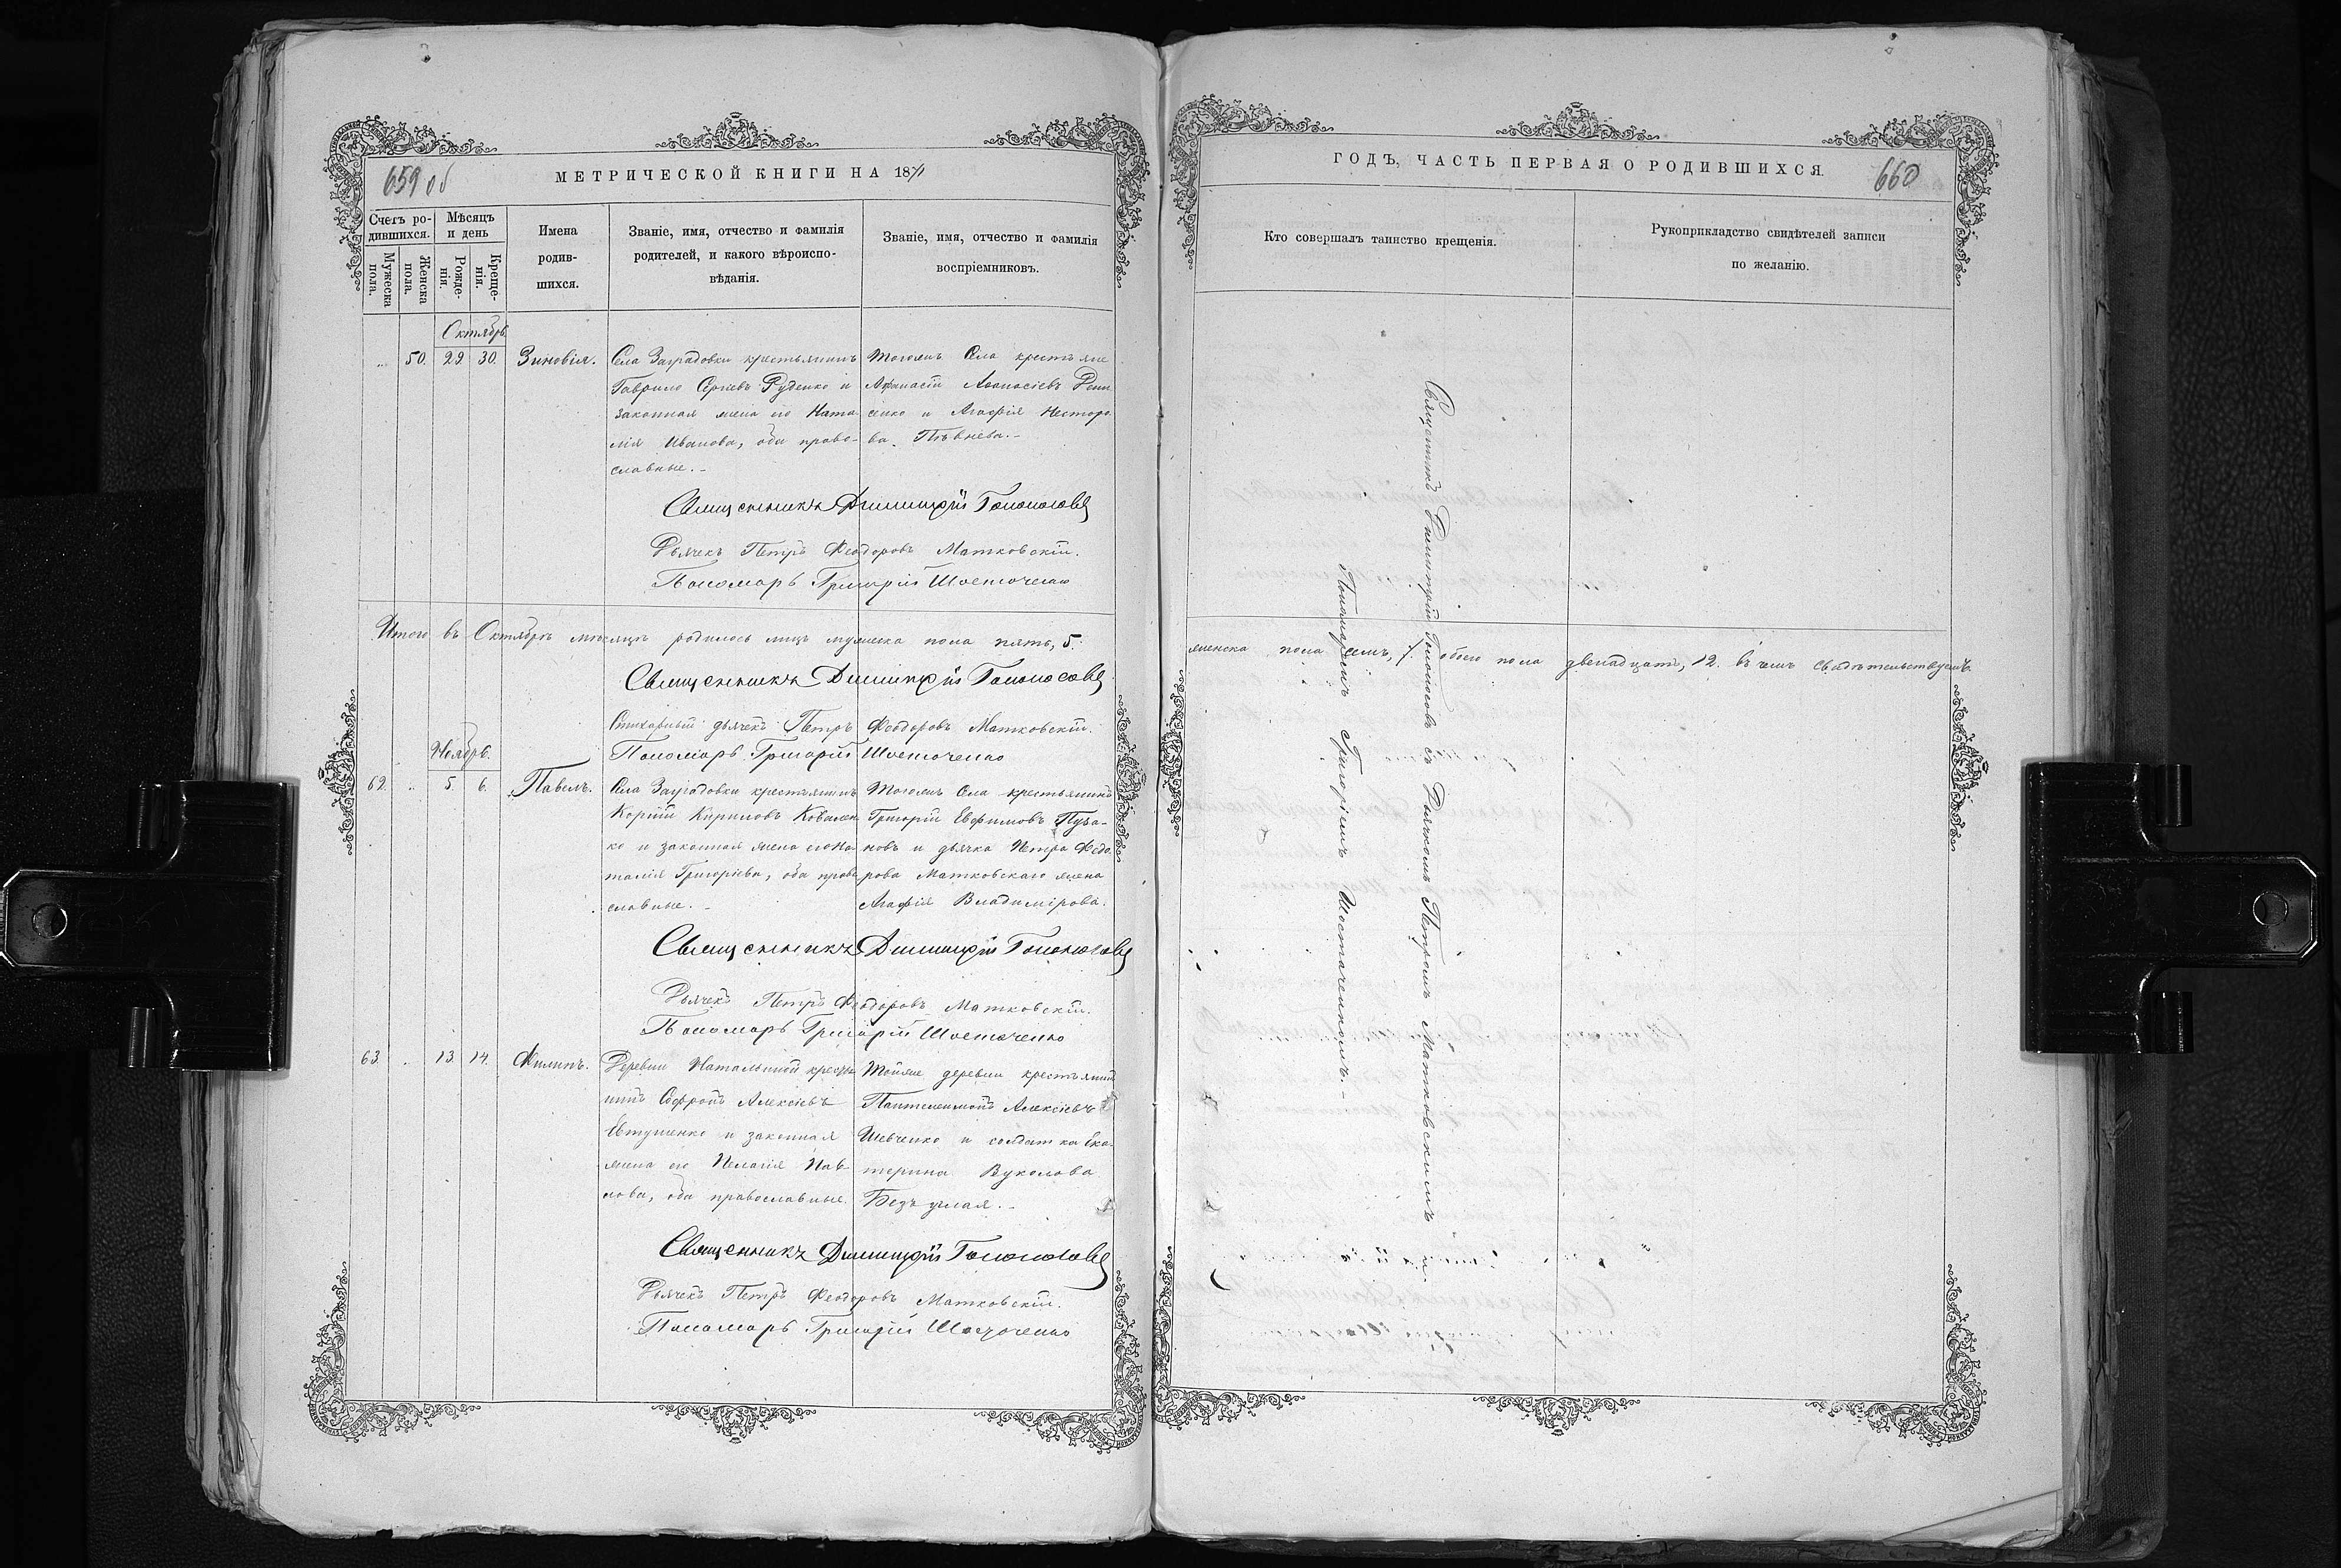 659 об
МЕТРИЧЕСКОЙ КНИГИ НА 1871
Счетъ ро-
дившихся.
Мужеска
пола.
Женска
пола.
Мѣсяцъ
и день
Рожде-
нія.
Креще-
нія.
Имена
родив-
шихся.
Званіе, имя, отчество и фамилія
родителей, и какого вѣроиспо-
вѣданія.
Званіе, имя, отчество и фамилія
воспріемниковъ.
Октябрь
50. 29 30. Зиновія.
Села Заградовки крестьянинъ
Гаврило Сергіевъ Руденко и
законная жена его Ната
лія Иванова, оба право-
славные.-
Тогожъ Села крестьяне
Афанасій Аѳанасіевъ
сенко и Агафія Несторо
ва
Священникъ Димитрій
Дьячекъ Петръ Феодоровъ Матковскій.
Пономарь Григорій Шостаченко
Итого въ Октябрѣ мѣсяцѣ родилось лицъ мужеска пола пять, 5.
Священникъ Димитрій
Стихарный дьячекъ Петръ Феодоровъ Матковскій.
Пономарь Григорій Шостаченко
Ноябрь.
62. 5 6. Павелъ.
Села Заградовки крестьянинъ
Корній Кириловъ Ковален
ко и законная жена его На
талія Григоріева, оба право
славные.-
Тогожъ Села крестьянинъ
Григорій Евфимовъ
новъ и дьячка Петра Федо
рова Матковскаго жена
Агафія Владимірова.
Священникъ Димитрій
Дьячекъ Петръ Феодоровъ Матковскій.
Пономарь Григорій Шостаченко
63 13 14. Филипъ.
Деревни Натальиной кресть
нинъ Софронъ Алексіевъ
Евтушенко и законная
жена его Пелагія Пав
лова, оба православные.
Тойже деревни крестьянинъ
Пантелеимонъ Алексіевъ
Шевченко и солдатка Ека-
терина Вуколова
Безъушая.-
Священникъ Димитрій
Дьячекъ Петръ Феодоровъ Матковскій.
Пономарь Григорій Шостаченко
ГОДЪ, ЧАСТЬ ПЕРВАЯ О РОДИВШИХСЯ.
660
Кто совершалъ таинство крещенія.
Рукоприкладство свидѣтелей записи
по желанію.
Священникъ Димитрій съ Дьячкомъ Петромъ Матковскимъ и
Пономаремъ Григоріемъ Шостаченкомъ.-
женска пола семь, 7. обоего пола двенадцать, 12. въ чемъ свидѣтельствуемъ.